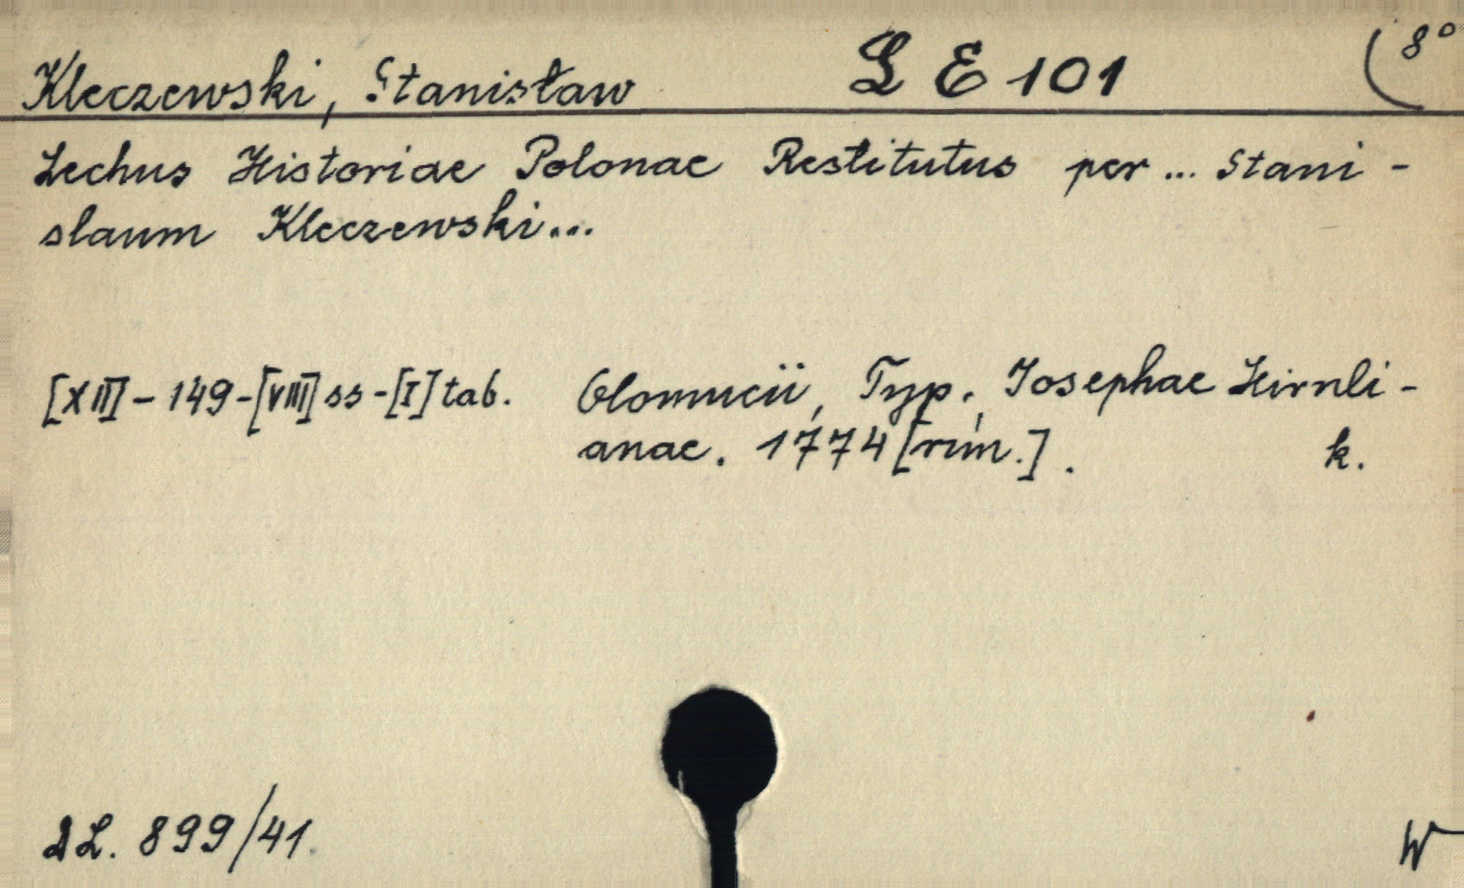 Kleczewski, Stanisław L E 101 (8°
Lechus Historiae Polonae Restitutus per ... Stani-
slaum Kleczewski...
[XII] - 149 - [VIII] ss - [I] tab. Olomucii, Typ. Josephae Hirnli-
anae. 1774 [rím.]. k.
L. 899/41.
W